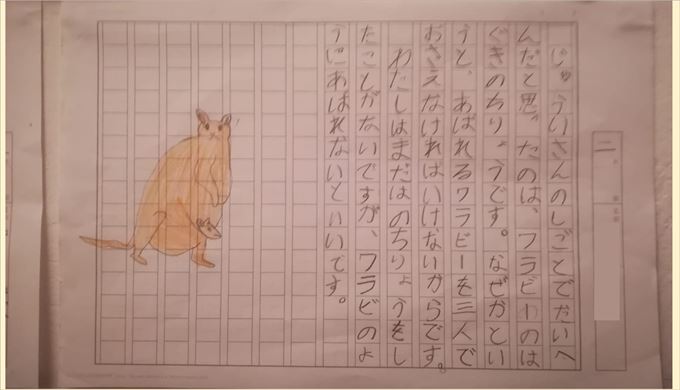 二
じゅういさんのしごとでだいへ
んだと思ったのは、ワラビーのは
ぐきのちりょうです。なぜかとい
うと、あばれるワラビーを三人で
おさえなければいけないからです。
わたしはまだはのちりょうをし
たことがないですが、ワラビのよ
うにあばれないといいです。